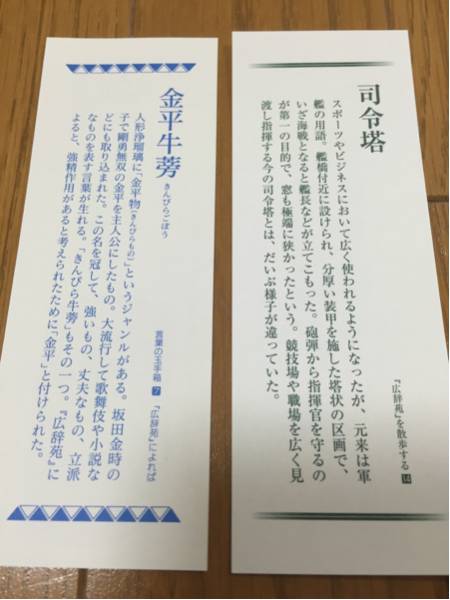 司令塔
スポーツやビジネスにおいて広く使われるようになったが、元来は軍
艦の用語。艦橋付近に設けられ、分厚い装甲を施した塔状の区画で、
いざ海戦となると艦長などが立てこもった。砲弾から指揮官を守るの
が第一の目的で、窓も極端に狭かったという。競技場や職場を広く見
渡し指揮する今の司令塔とは、だいぶ様子が違っていた。
『広辞苑』を散歩する 14
金平牛蒡 きんぴらごぼう
人形浄瑠璃に「金平物(きんぴらもの)」というジャンルがある。坂田金時の
子で剛勇無双の金平を主人公にしたもの。大流行して歌舞伎や小説な
どにも取り込まれた。この名を冠して、強いもの、丈夫なもの、立派
なものを表す言葉が生れる。「きんぴら牛蒡」もその一つ。『広辞苑』に
よると、強精作用があると考えられたために「金平」と付けられた。
言葉の玉手箱 7 『広辞苑』によれば